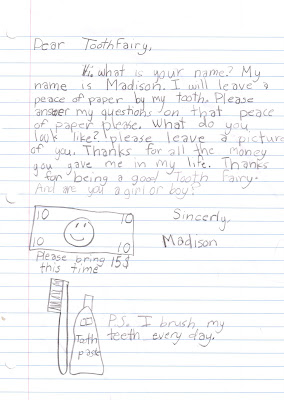 Dear ToothFairy,
Hi. what is your name? My
name is Madison. I will leave a
peace of paper by my tooth. Please
answer my questions on that peace
of paper please. What do you
look like? please leave a picture
of you. Thanks for all the money
you gave me in my life. Thanks
for being a good Tooth Fairy.
And are you a girl or boy?
10 10
10 10
Sincerly,
Madison
Please bring 15$
this time
P.S. I brush my
teeth every day.
Tooth
paste